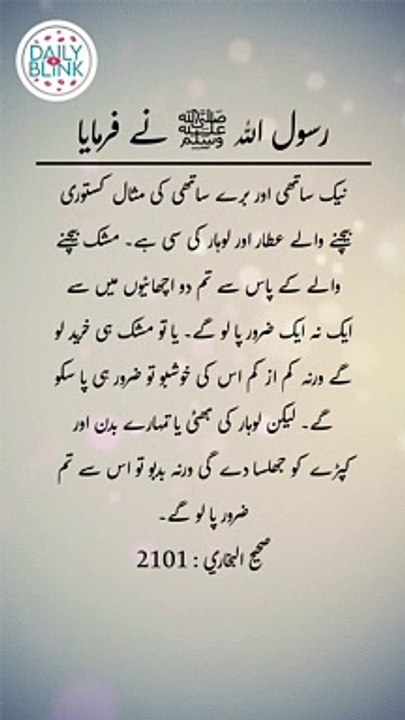 DAILY
BLINK
رسول اللہ ﷺ نے فرمایا
نیک ساتھی اور برے ساتھی کی مثال کستوری
بیچنے والے عطار اور لوہار کی سی ہے۔ مشک بیچنے
والے کے پاس سے تم دو اچھائیوں میں سے
ایک نہ ایک ضرور پا لو گے۔ یا تو مشک ہی خرید لو
گے ورنہ کم از کم اس کی خوشبو تو ضرور ہی پا سکو
گے۔ لیکن لوہار کی بھٹی یا تمہارے بدن اور
کپڑے کو جھلسا دے گی ورنہ بدبو تو اس سے تم
ضرور پا لو گے۔
صحیح البخاري : 2101